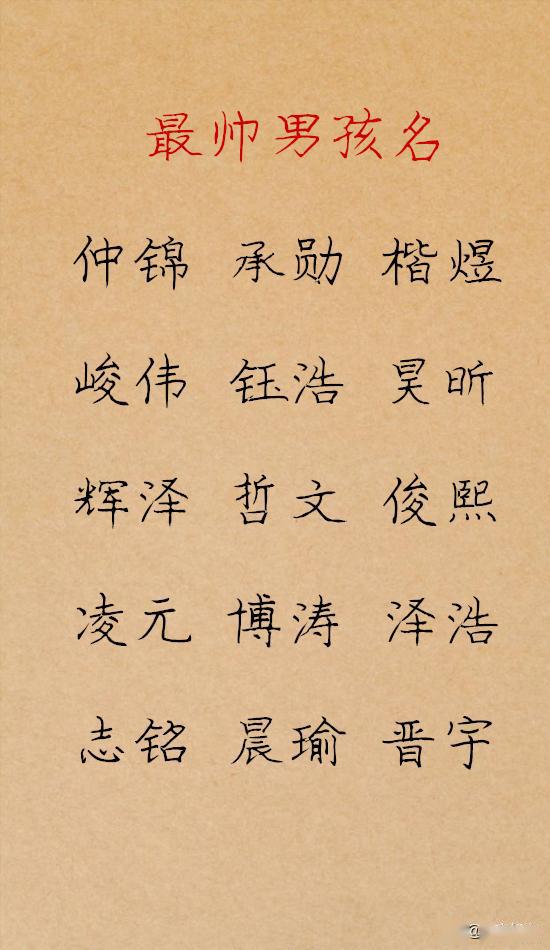 最帅男孩名
仲锦 承勋 楷煜
峻伟 钰浩 昊昕
辉泽 哲文 俊熙
凌元 博涛 泽浩
志铭 晨瑜 晋宇
@